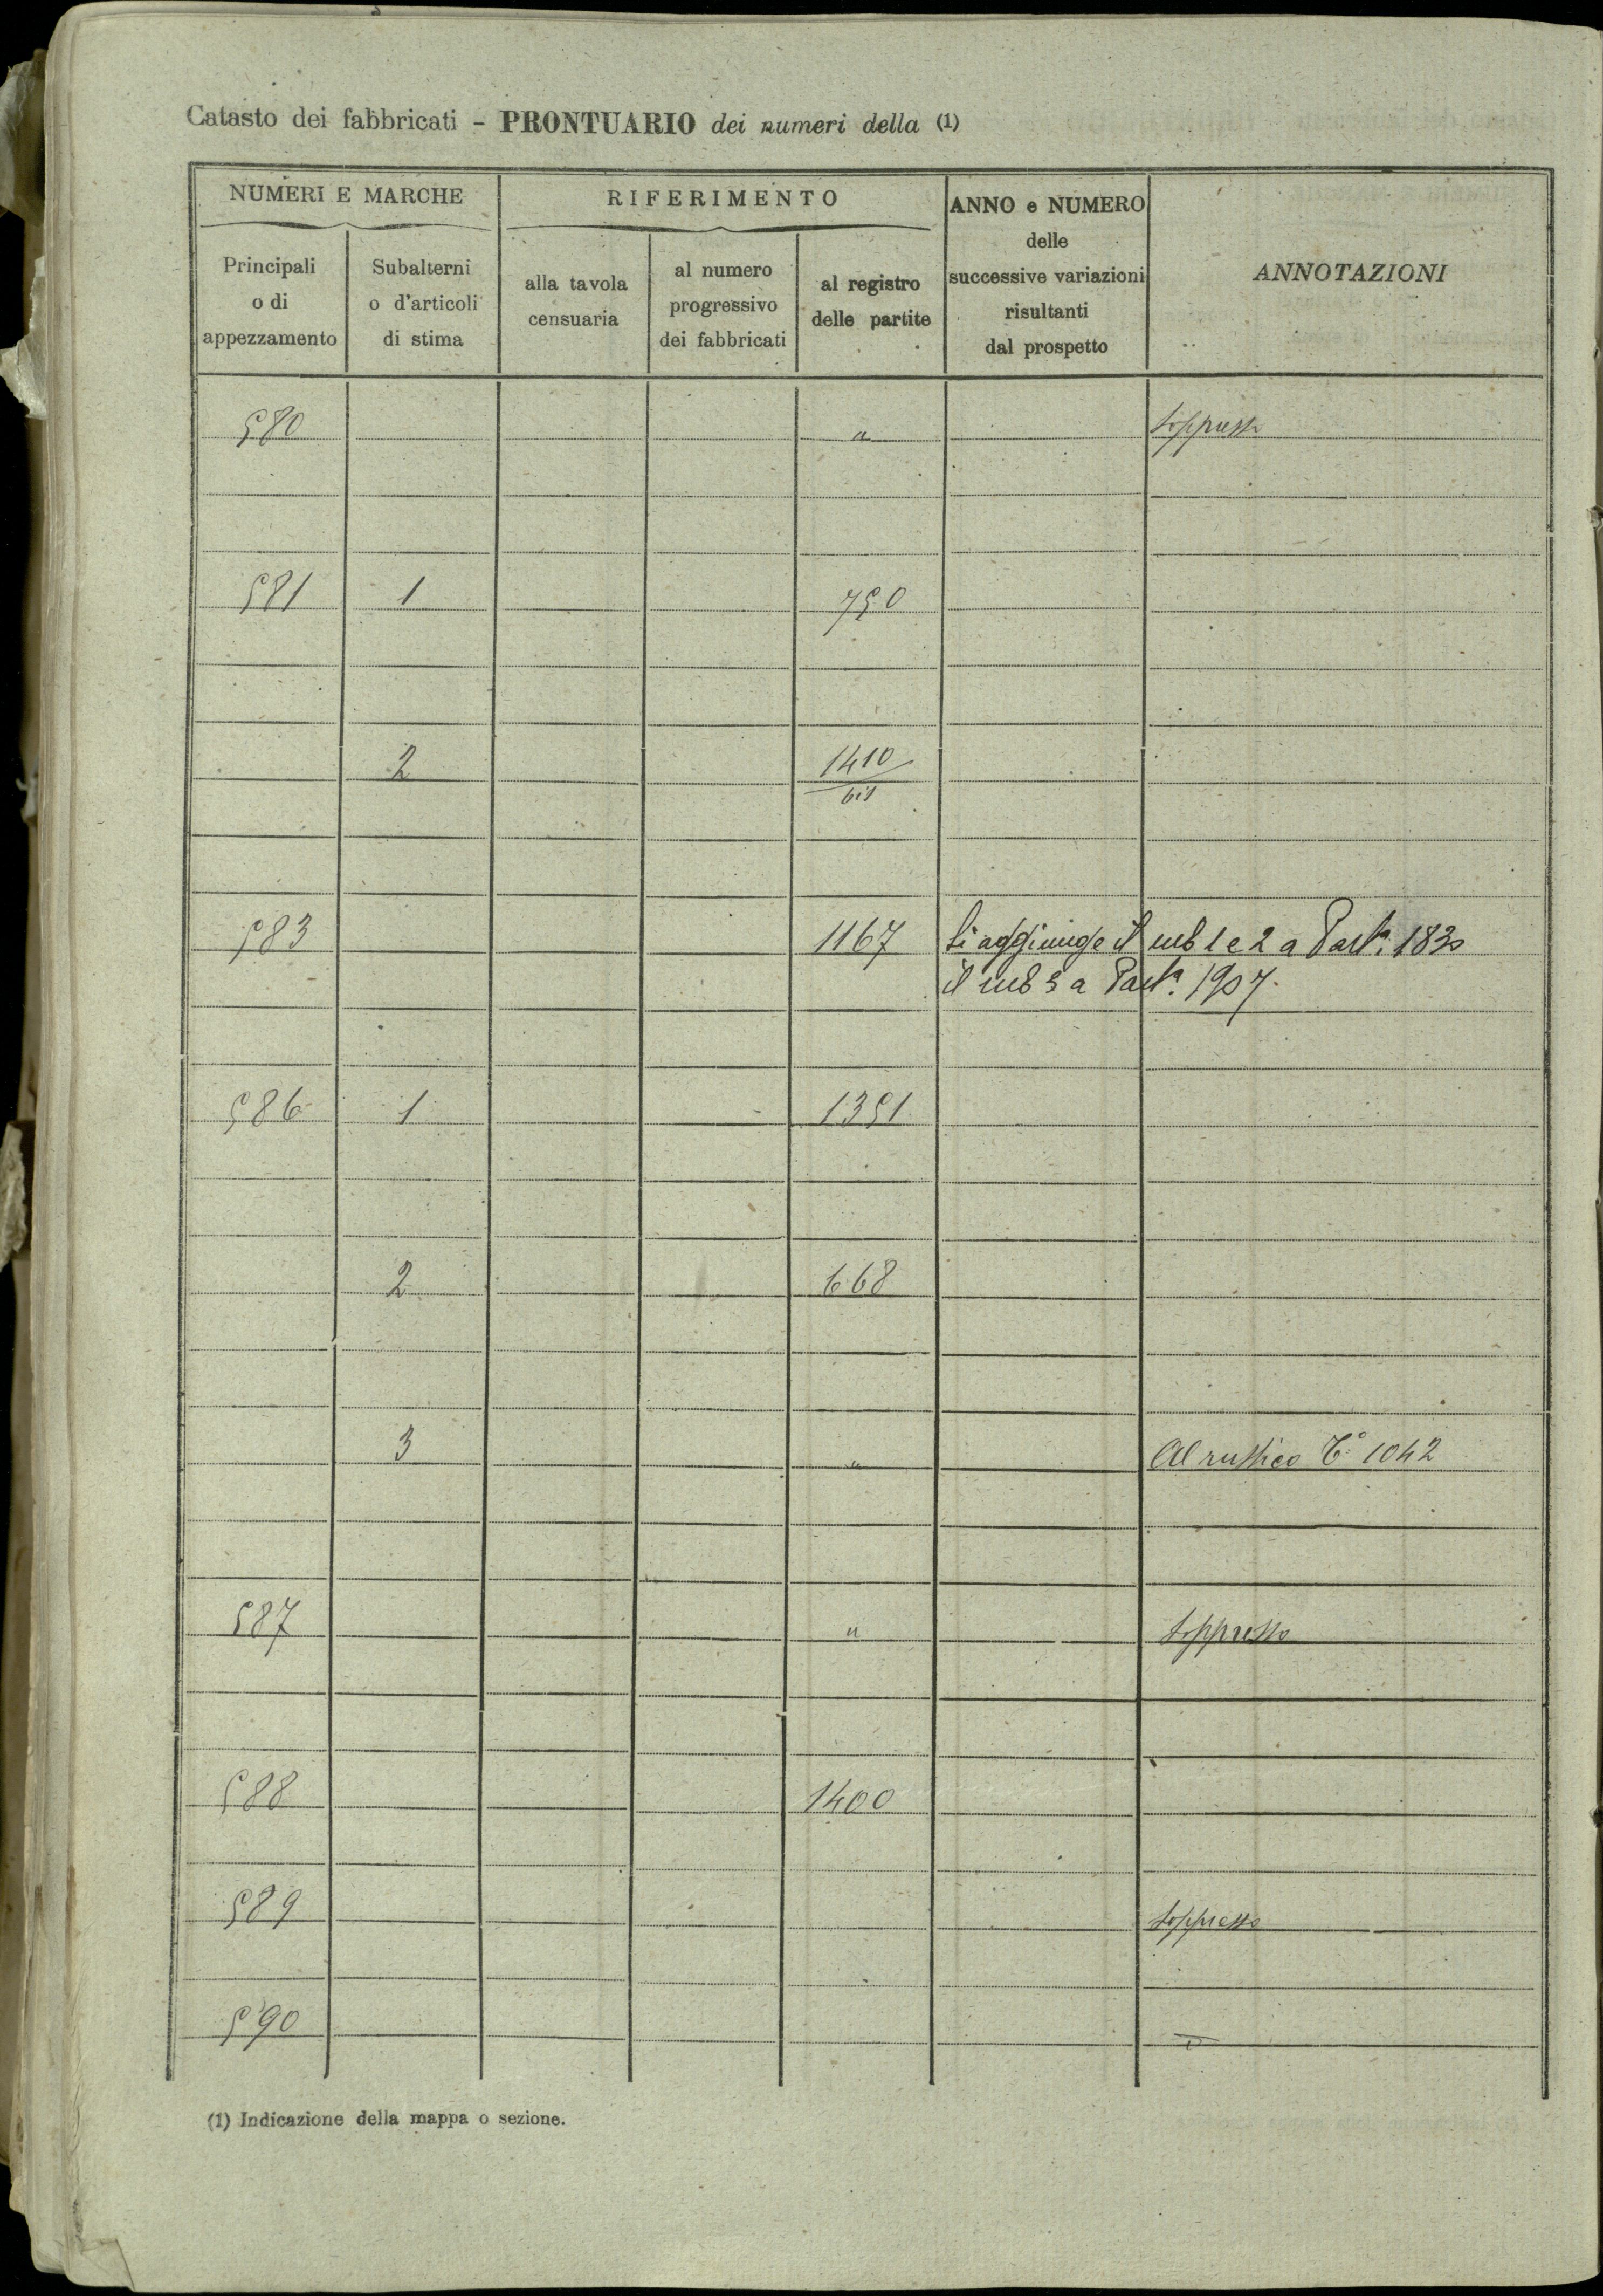 Catasto dei fabbricati - PRONTUARIO dei numeri della (1)
NUMERI E MARCHE
RIFERIMENTO
ANNO e NUMERO
delle
successive variazioni
risultanti
dal prospetto
ANNOTAZIONI
Principali
o di
appezzamento
Subalterni
o d'articoli
di stima
alla tavola
censuaria
al numero
progressivo
dei fabbricati
al registro
delle partite
580 " Soppresso
581 1 750
2 1410
bis
583 1167 Si aggiunge il sub 1 e 2 a Parta. 1830
il sub 3 a Parta. 1907.
586 1 1351
2 668
3 " Al rustico 1042
587 " Soppresso
588 1400
589 Soppresso
590 "
(1) Indicazione della mappa o sezione.